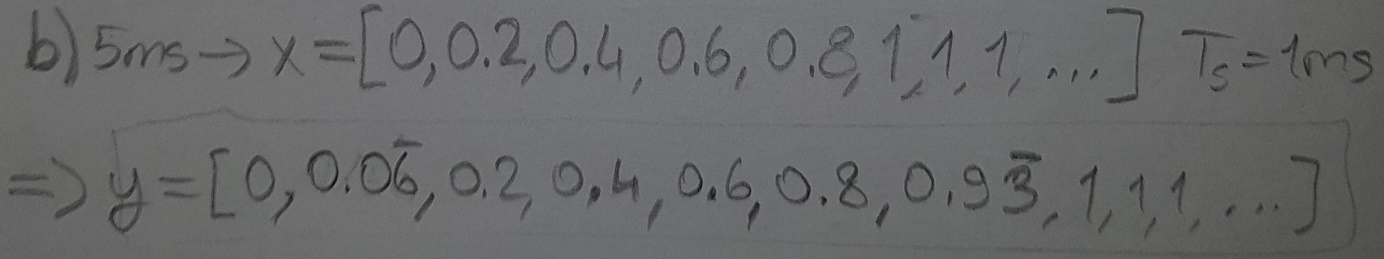 b) 5ms → x = [0, 0.2, 0.4, 0.6, 0.8, 1, 1, 1, ...] Tₛ = 1ms
⇒ y = [0, 0.06̅, 0.2, 0.4, 0.6, 0.8, 0.93̅, 1, 1, 1, ...]